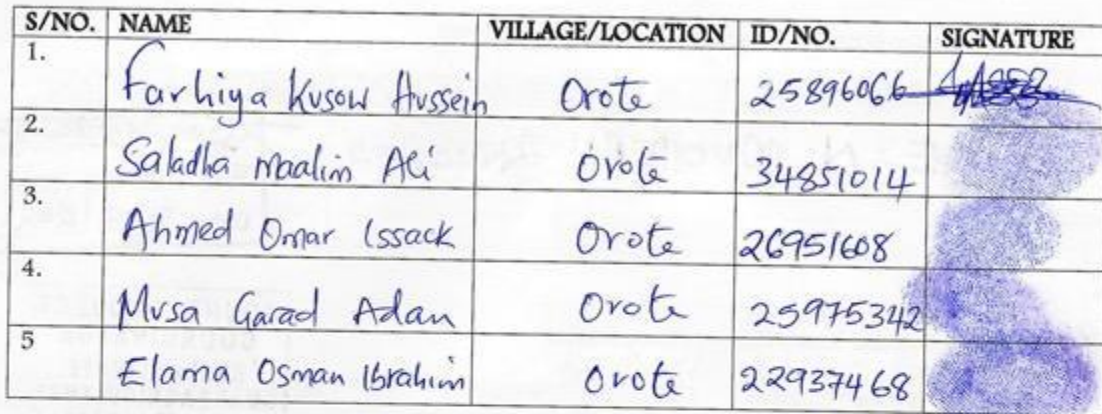 S/NO. NAME VILLAGE/LOCATION ID/NO. SIGNATURE
1. Farhiya Kusow Hussein Orote 25896066
2. Saladha Maalim Ali Orote 34851014
3. Ahmed Omar Issack Orote 26951608
4. Musa Garad Adan Orote 25975342
5 Elama Osman Ibrahim Orote 22937468